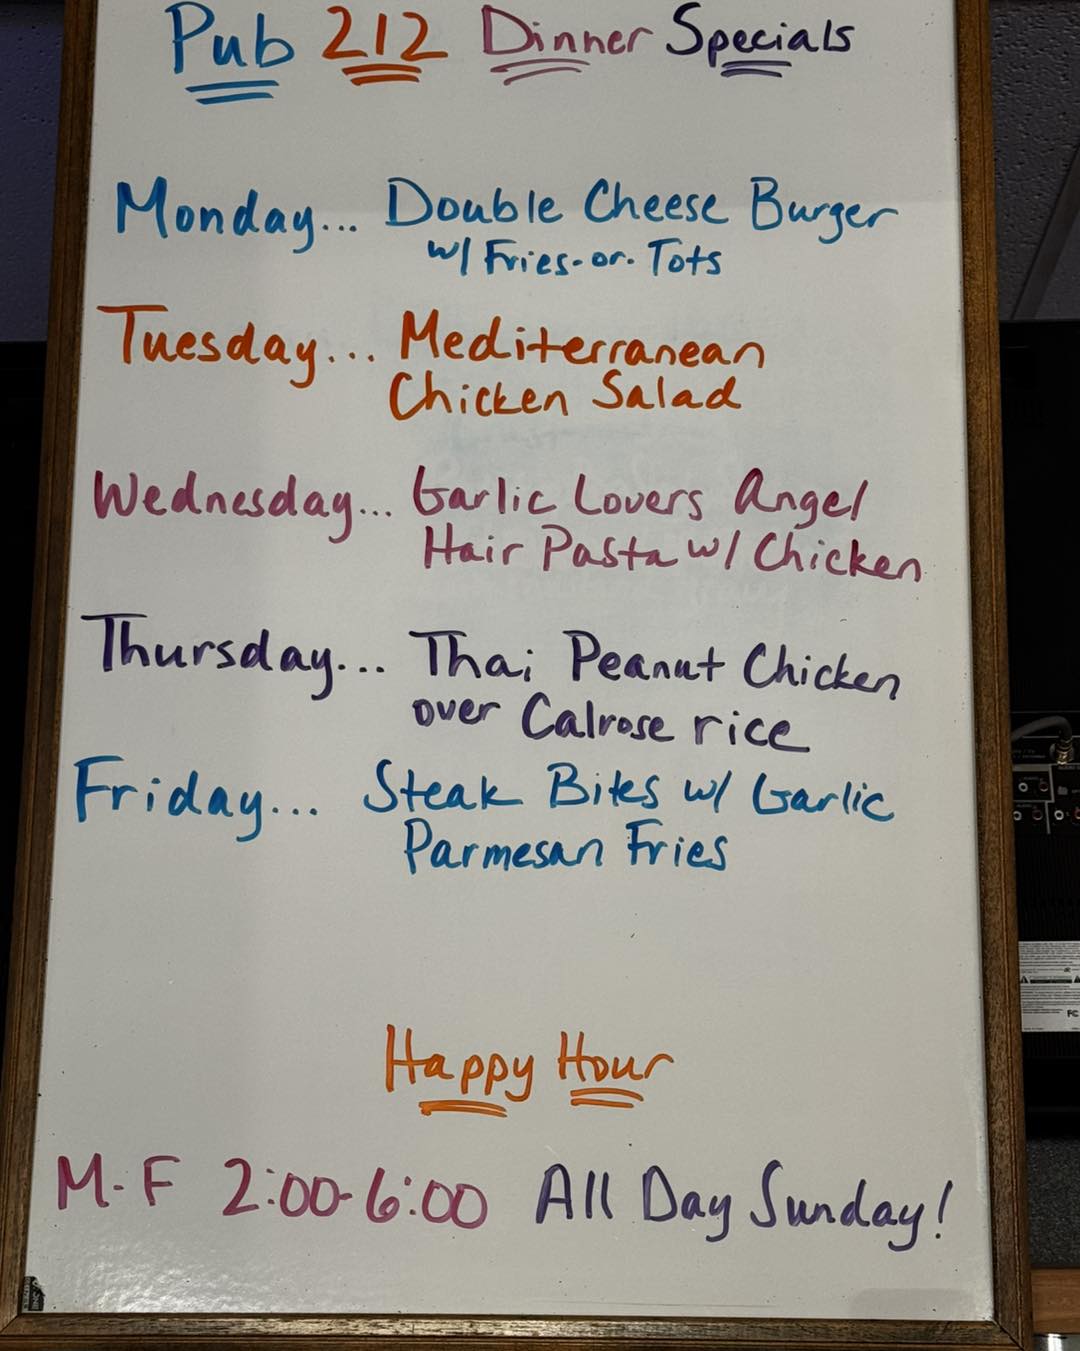 Pub 212 Dinner Specials
Monday... Double Cheese Burger
w/ Fries-or-Tots
Tuesday... Mediterranean
Chicken Salad
Wednesday... Garlic Lovers Angel
Hair Pasta w/ Chicken
Thursday... Thai Peanut Chicken
over Calrose rice
Friday... Steak Bites w/ Garlic
Parmesan Fries
Happy Hour
M-F 2:00-6:00 All Day Sunday!
FC